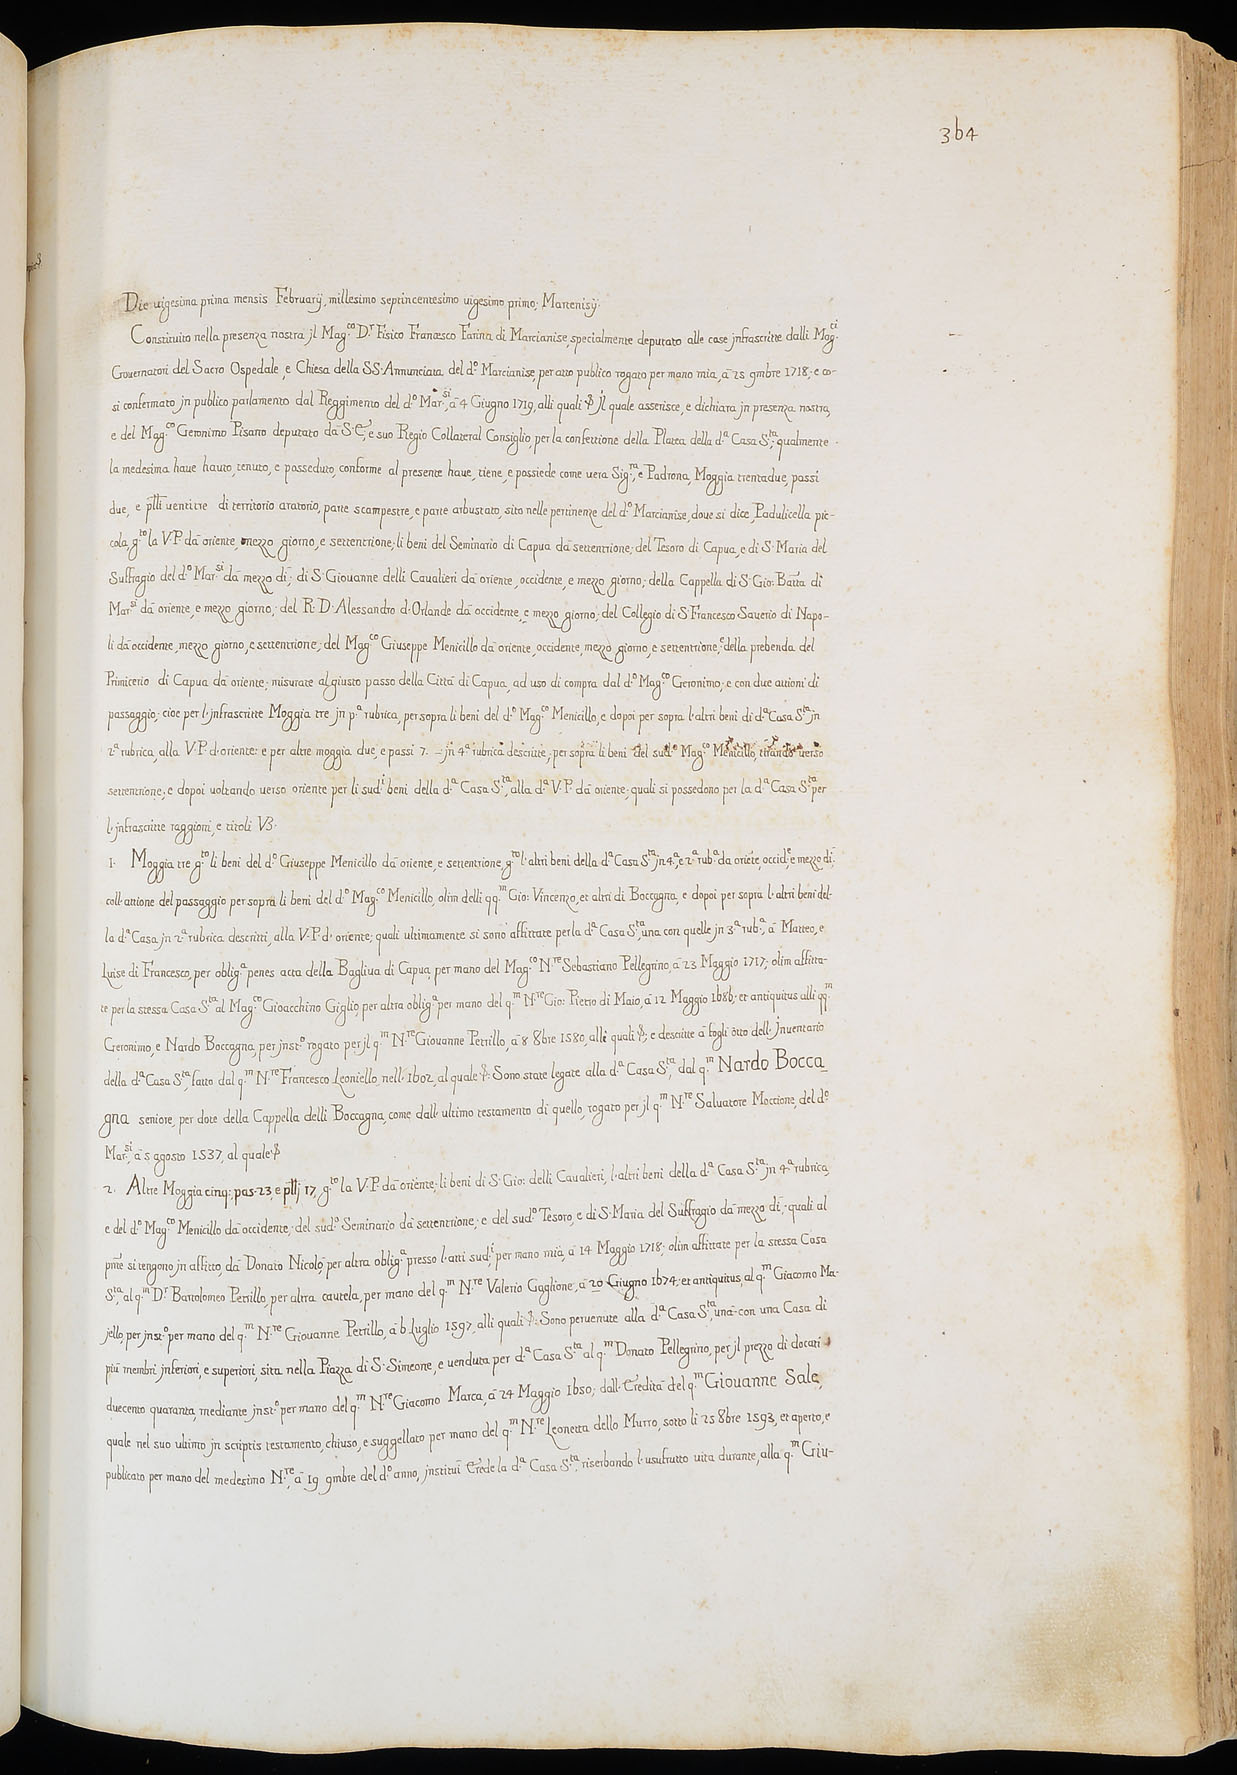 364
Die uigesima prima mensis Februarij, millesimo septincentesimo uigesimo primo; Martenisij·
Constituito nella presenza nostra jl Mag.co D.r Fisico Francesco Farina di Marcianise, specialmente deputato alle cose jnfrascritte dalli Mag.ci
Gouernatori del Sacro Ospedale, e Chiesa della SS. Annunciata del d.o Marcianise, per atto publico rogato per mano mia, à 25 9mbre 1718; e co-
si confermato jn publico parlamento dal Reggimento del d.o Mar.si, à 4 Giugno 1719, alli quali Jl quale asserisce, e dichiara jn presenza nostra,
e del Mag.co Geronimo Pisano deputato dà S. E., e suo Regio Collateral Consiglio, per la confettione della Platea della d.a Casa S.ta, qualmente
la medesima haue hauto, tenuto, e posseduto, conforme al presente haue, tiene, e possiede come uera Sig.ra, e Padrona, Moggia trentadue, passi
due, e p̃lli uentitre di territorio aratorio, parte scampestre, e parte arbustato, sito nelle pertinenze del d.o Marcianise, doue si dice, Padulicella pic-
cola, g.to la V. P. dà oriente, mezzo giorno, e settentrione; li beni del Seminario di Capua dà settentrione; del Tesoro di Capua, e di S. Maria del
Suffragio del d.o Mar.si dà mezzo dì; di S. Giouanne delli Caualieri dà oriente, occidente, e mezzo giorno; della Cappella di S. Gio: Batta di
Mar.si dà oriente, e mezzo giorno; del R. D. Alessandro d'Orlande dà occidente, e mezzo giorno; del Collegio di S. Francesco Sauerio di Napo-
li dà occidente, mezzo giorno, e settentrione; del Mag.co Giuseppe Menicillo dà oriente, occidente, mezzo giorno, e settentrione, e della prebenda del
Primicerio di Capua dà oriente; misurate al giusto passo della Città di Capua, ad uso di compra dal d.o Mag.co Geronimo; e con due attioni di
passaggio; cioe per l'jnfrascritte Moggia tre jn p.a rubrica, per sopra li beni del d.o Mag.co Menicillo, e dopoi per sopra l'altri beni di d.a Casa S.ta jn
2.a rubrica, alla V. P. d'oriente: e per altre moggia due, e passi 7. – jn 4.a rubrica descritte, per sopra li beni del sud.o Mag.co Menicillo, tirando uerso
settentrione; e dopoi uoltando uerso oriente per li sud.i beni della d.a Casa S.ta, alla d.a V. P. dà oriente; quali si possedono per la d.a Casa S.ta per
l'jnfrascritte raggioni, e titoli V3.
1. Moggia tre g.to li beni del d.o Giuseppe Menicillo dà oriente, e settentrione, g.to l'altri beni della d.a Casa S.ta jn 4.a, e 2.a rub.a da oriẽte, occid.e, e mezzo dì,
coll'attione del passaggio per sopra li beni del d.o Mag.co Menicillo, olim delli qq.m Gio: Vincenzo, et altri di Boccagna, e dopoi per sopra l'altri beni del-
la d.a Casa jn 2.a rubrica descritti, alla V. P. d'oriente; quali ultimamente si sono affittate per la d.a Casa S.ta, una con quelle jn 3.a rub.a, à Matteo, e
Luise di Francesco, per oblig.a penes acta della Bagliua di Capua, per mano del Mag.co N.re Sebastiano Pellegrino, à 23 Maggio 1717; olim affitta-
te per la stessa Casa S.ta al Mag.co Gioacchino Giglio, per altra oblig.a per mano del q.m N.re Gio: Pietro di Maio, à 12 Maggio 1686; et antiquitus alli qq.m
Geronimo, e Nardo Boccagna, per jnst.o rogato per jl q.m N.re Giouanne Petrillo, à 8 8bre 1580, alli quali; e descritte à fogli otto dell'Jnuentario
della d.a Casa S.ta, fatto dal q.m N.re Francesco Leoniello, nell'1602, al quale: Sono state legate alla d.a Casa S.ta, dal q.m Nardo Bocca
gna seniore, per dote della Cappella delli Boccagna, come dall'ultimo testamento di quello, rogato per jl q.m N.re Saluatore Moccione, del d.o
Mar.si, à 5 agosto 1537, al quale
2. Altre Moggia cinq;, pas. 23, e p̃llj 17, g.to la V. P. dà oriente; li beni di S. Gio: delli Caualieri, l'altri beni della d.a Casa S.ta jn 4.a rubrica,
e del d.o Mag.co Menicillo dà occidente; del sud.o Seminario dà settentrione; e del sud.o Tesoro, e di S. Maria del Suffragio dà mezzo dì; quali al
pñte si tengono jn affitto, dà Donato Nicolò, per altra oblig.a presso l'atti sud.i, per mano mia, à 14 Maggio 1718; olim affittate per la stessa Casa
S.ta, al q.m D.r Bartolomeo Petrillo, per altra cautela, per mano del q.m N.re Valerio Gaglione, à 20 Giugno 1674; et antiquitus, al q.m Giacomo Ma-
jello, per jnst.o per mano del q.m N.re Giouanne Petrillo, à 6 Luglio 1597, alli quali: Sono peruenute alla d.a Casa S.ta, unà con una Casa di
più membri jnferiori, e superiori, sita nella Piazza di S. Simeone, e uenduta per d.a Casa S.ta al q.m Donato Pellegrino, per jl prezzo di docati
duecento quaranta, mediante jnst.o per mano del q.m N.re Giacomo Marca, à 24 Maggio 1650; dall'Eredità del q.m Giouanne Sale,
quale nel suo ultimo jn scriptis testamento, chiuso, e suggellato per mano del q.m N.re Leonetta dello Murro, sotto li 25 8bre 1593, et aperto, e
publicato per mano del medesimo N.re, à 19 9mbre del d.o anno, jnstituì Erede la d.a Casa S.ta, riserbando l'usufrutto uita durante, alla q.m Giu-